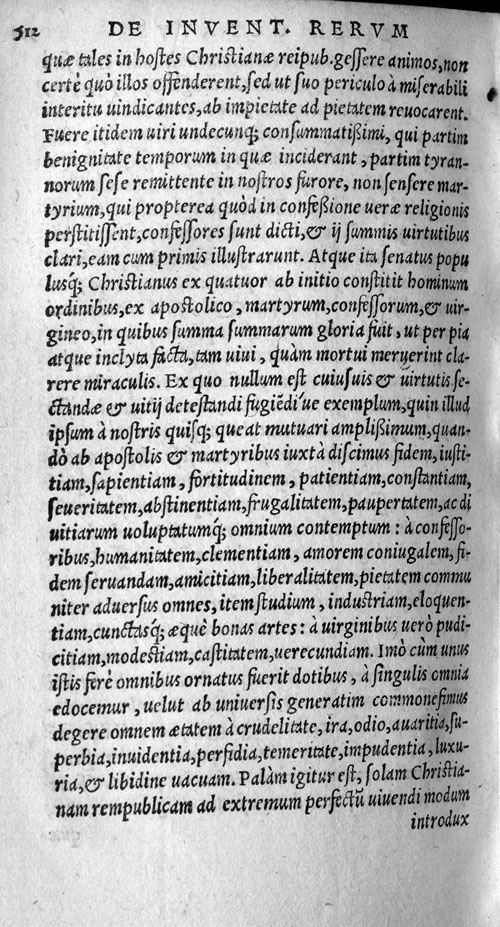 512 DE INVENT. RERVM
quæ tales in hostes Christianæ reipub. gessere animos, non
certè quò illos offenderent, sed ut suo periculo à miserabili
interitu uindicantes, ab impietate ad pietatem reuocarent.
Fuere itidem uiri undecunq; consummatißimi, qui partim
benignitate temporum in quæ inciderant, partim tyran-
norum sese remittente in nostros furore, non sensere mar-
tyrium, qui propterea quòd in confeßione ueræ religionis
perstitissent, confessores sunt dicti, & ij summis uirtutibus
clari, eam cum primis illustrarunt. Atque ita senatus popu
lusq; Christianus ex quatuor ab initio constitit hominum
ordinibus, ex apostolico, martyrum, confessorum, & uir-
gineo, in quibus summa summarum gloria fuit, ut per pia
atque inclyta facta, tam uiui, quàm mortui meruerint cla-
rere miraculis. Ex quo nullum est cuiusuis & uirtutis se-
ctandæ & uitij detestandi fugiēdi´ue exemplum, quin illud
ipsum à nostris quisq; queat mutuari amplißimum, quan-
dò ab apostolis & martyribus iuxtà discimus fidem, iusti-
tiam, sapientiam, fortitudinem, patientiam, constantiam,
seueritatem, abstinentiam, frugalitatem, paupertatem, ac di
uitiarum uoluptatumq; omnium contemptum: à confesso-
ribus, humanitatem, clementiam, amorem coniugalem, fi-
dem seruandam, amicitiam, liberalitatem, pietatem commu
niter aduersus omnes, item studium, industriam, eloquen-
tiam, cunctasq; æquè bonas artes: à uirginibus uerò pudi-
citiam, modestiam, castitatem, uerecundiam. Imò cùm unus
istis ferè omnibus ornatus fuerit dotibus, à singulis omnia
edocemur, uelut ab uniuersis generatim commonefimus
degere omnem ætatem à crudelitate, ira, odio, auaritia, su-
perbia, inuidentia, perfidia, temeritate, impudentia, luxu-
ria, & libidine uacuam. Palàm igitur est, solam Christia-
nam rempublicam ad extremum perfectū uiuendi modum
introdux